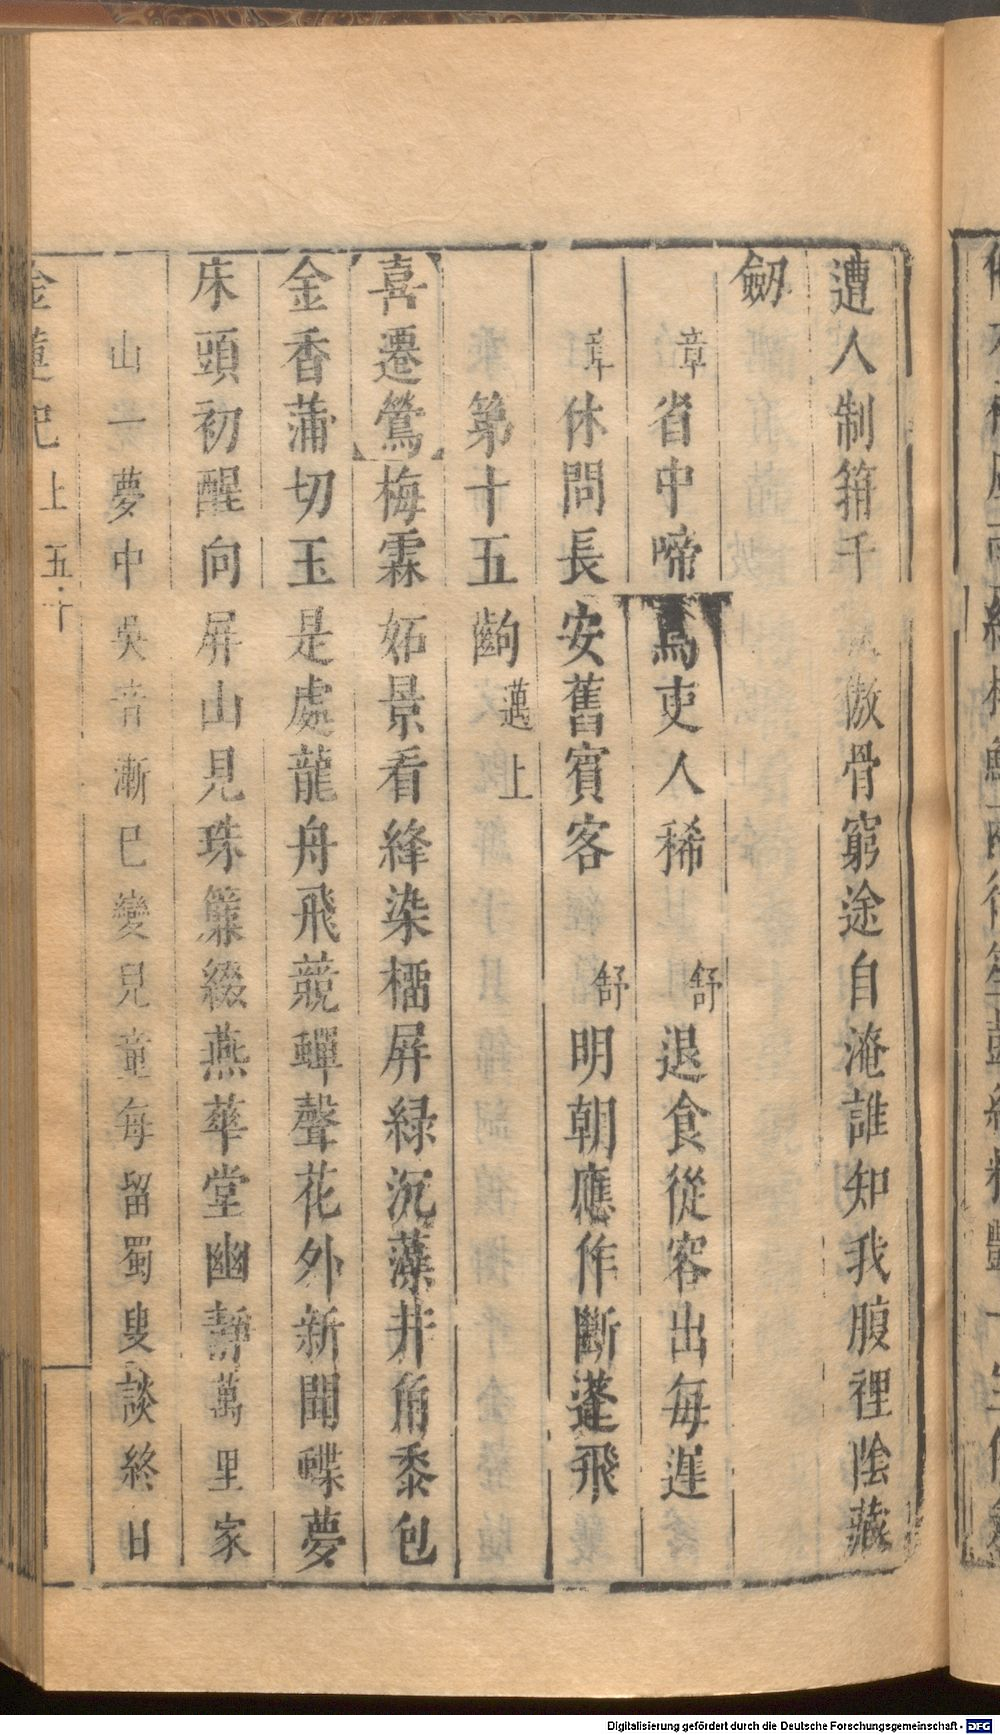 遭人制箝千 傲骨窮途自淹誰知我腹裡陰藏
劒
章省中啼鳥吏人稀 舒退食從容出每遲
章休問長安舊賓客 舒明朝應作斷蓬飛
第十五齣 邁上
喜遷鶯 梅霖妬景看絳染橊屏緑沉藻井角黍包
金香蒲切玉是處龍舟飛競蟬聲花外新聞蝶夢
床頭初醒向屏山見珠簾綴燕華堂幽靜萬里家
山一夢中吳音漸已變兒童每留蜀叟談終日
金蓮記 上 五十
Digitalisierung gefördert durch die Deutsche Forschungsgemeinschaft - DFG